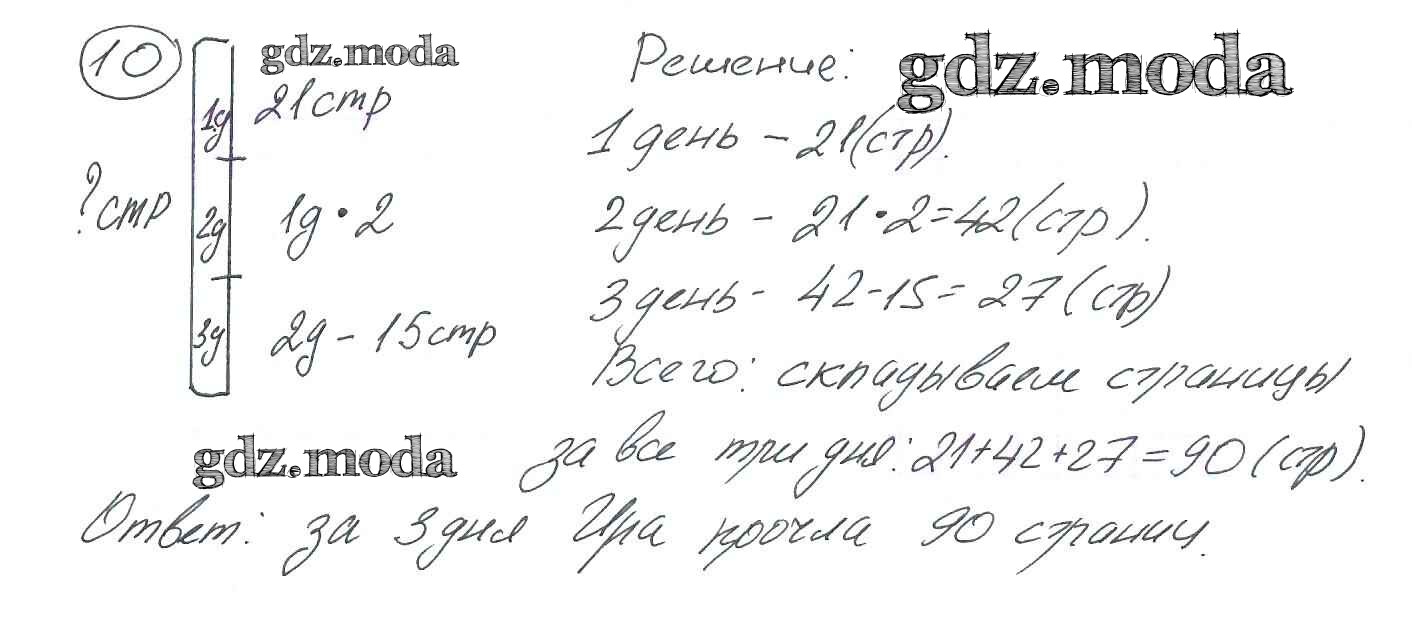 10
gdz.moda
Решение:
gdz.moda
1д 21стр
1 день - 21(стр).
?стр
2д 1д · 2
2 день - 21 · 2 = 42 (стр).
3 день - 42 - 15 = 27 (стр)
3д 2д - 15стр
Всего: складываем страницы
gdz.moda
за все три дня: 21+42+27=90 (стр).
Ответ: за 3 дня Ира прочла 90 страниц.